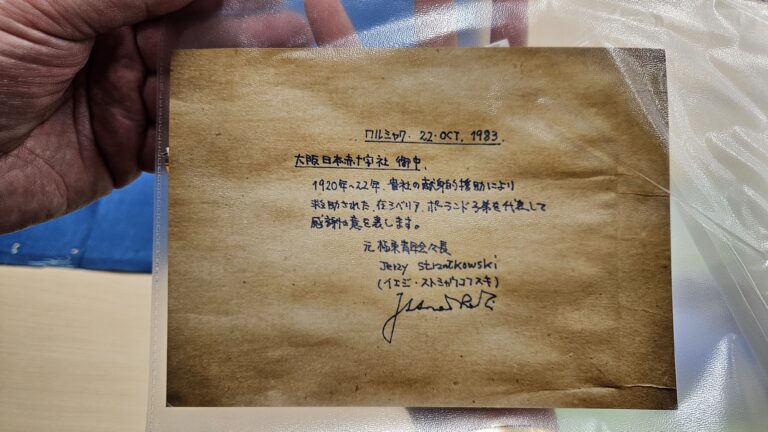 ワルシャワ. 22. OCT. 1983.
大阪日本赤十字社 御中.
1920年~22年、貴社の献身的援助により
救助された、在シベリア、ポーランド子弟を代表して
感謝の意を表します。
元 極東青年会々長
Jerzy Strzałkowski
(イエジ・ストシャウコフスキ)